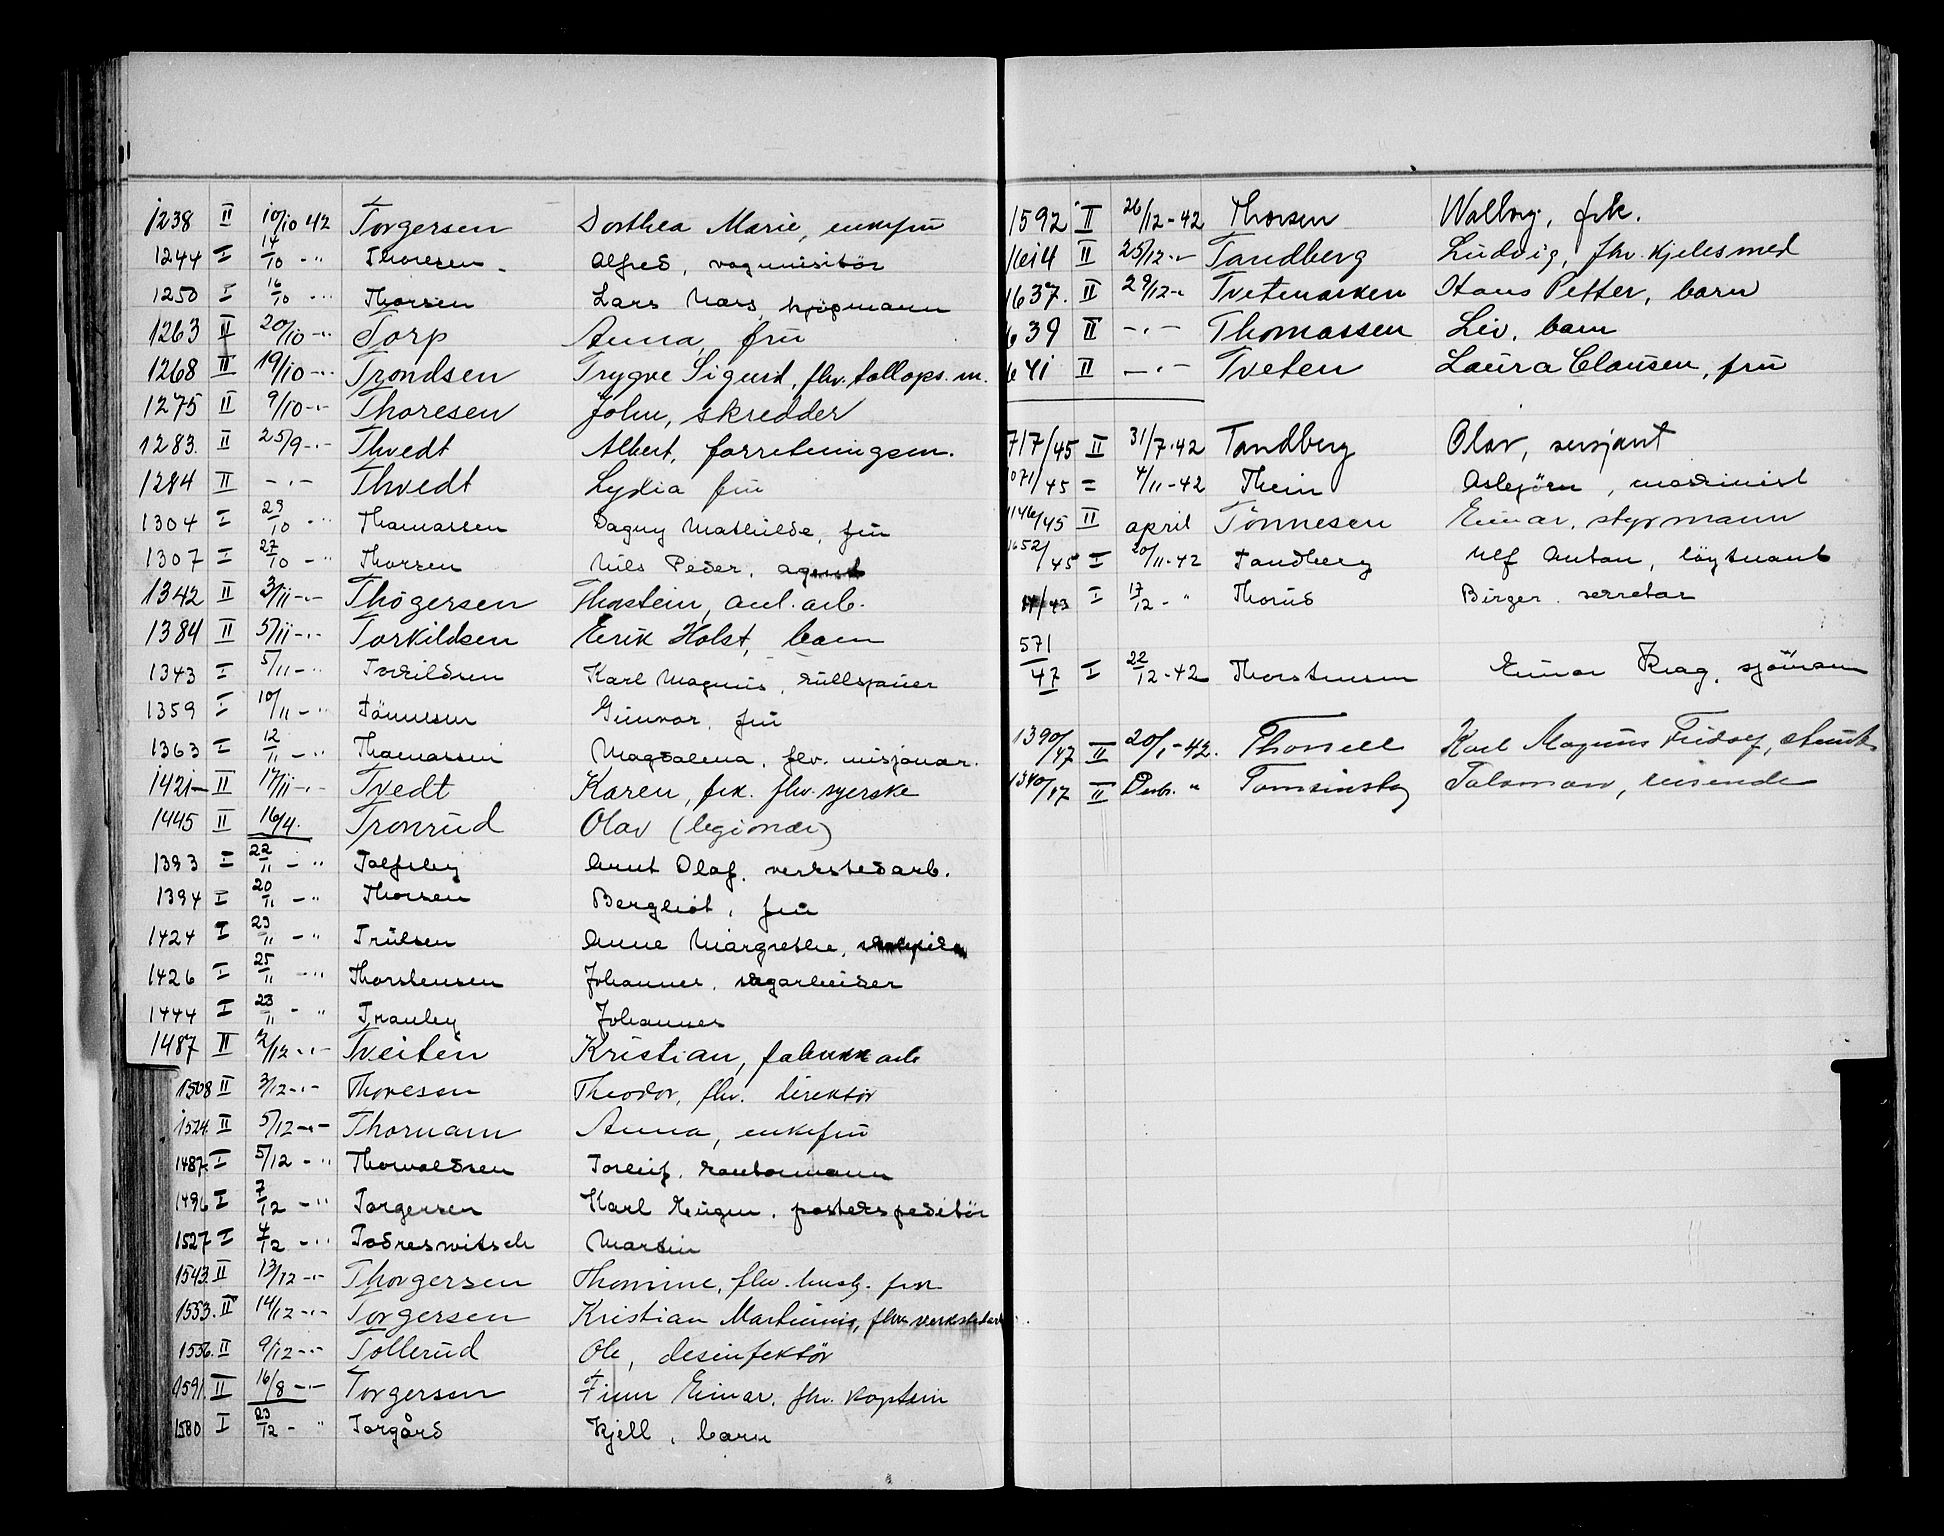 1238 II 10/10 42 Torgersen Dorthea Marie, enkefru
1244 I 14/10 - " Thoresen Alfred, vognvisitör
1250 I 16/10 - " Thorsen Lars Mars, kjöpmann
1263 II 20/10 - " Torp Anna, fru
1268 II 19/10 - " Trondsen Trygve Sigurd, fhv. tollops. m.
1275 II 9/10 - " - Thoresen John, skredder
1283. II 25/9 - " - Thvedt Albert, forretningsm.
1284 II - " - Thvedt Lydia fru
1304 I 29/10 - " Thomassen Dagny Mathilde, fru
1307 I 27/10 - " Thorsen Nils Peder, agent
1342 II 3/11 - " - Thögersen Thorstein, anl. arb.
1384 II 5/11 - " - Torkildsen Eerik Holst, barn
1343 I 5/11 - " Torkildsen Karl Magnus, rullskauer
1359 I 10/11 - " Tönnesen Gunvor, fru
1363 I 12/11 - " Thomassen Magdalena, fhv. misjonær.
1421 - II 17/11 - " - Tvedt Karen, frk. fhv. syerske
1445 II 16/4. Tronrud Olav (legionær)
1393 I 22/11 - " Tolfsby Arnt Olaf, verkstedarb.
1394 I 20/11 - " Thorsen Bergliot, fru
1424 I 23/11 - " Trulsen Anne Margrethe,
1426 I 25/11 - " Thorstensen Johannes, sagarbeider
1444 I 23/11 - " Tranby Johannes
1487 II 2/12 - " - Tveiten Kristian, fabrikkarb
1508 II 3/12 - " - Thoresen Theodor, fhv. direktör
1524. II 5/12 - " - Thornam Anna, enkefru
1487. I 5/12 - " Thorvaldsen Torleif, kontormann
1496 I 7/12 - " Torgersen Karl Eugen, postekspeditör
1527 I 4/12 - " Todreswitsch Martin
1543. II 13/12 - " - Thorgersen Thomine, fhv. hush. frk
1553. II 14/12 - " - Torgersen Kristian Martinius, fhv. verkstedarb
1556. II 9/12 - " - Tollerud Ole, desinfektör
1591. II 16/8 - " - Torgersen Finn Einar, fhv. kaptein
1580 I 23/12 - " Torgård Kjell, barn
1592 II 26/12 - 42 Thorsen Walborg, frk.
1614 II 25/12 - " - Tandberg Ludvig, fhv. kjelesmed
1637. II 29/12 - " Tvetmarken Hans Petter, barn
639 II - " - Thomassen Liv, barn
641 II - " - Tveten Laura Clausen, fru
717/45 II 31/7 - 42 Tandberg Olav, sersjant
1071/45 = 4/11 - 42 Thein Asbjörn, maskinist
1146/45 II april Tönnesen Einar, styrmann
1652/45 I 20/11 - 42 Tandberg Ulf Anton, löytnant
I 17/12 - " Thorud Birger, sekretær
571/47 I 22/12 - 42 Thorstensen Einar Krag, sjömann
1390/47 II 20/1 - 42. Thorsell Karl Magnus Fridolf,
1340/47 II Desb. " Tomsinsky Salomon, reisende